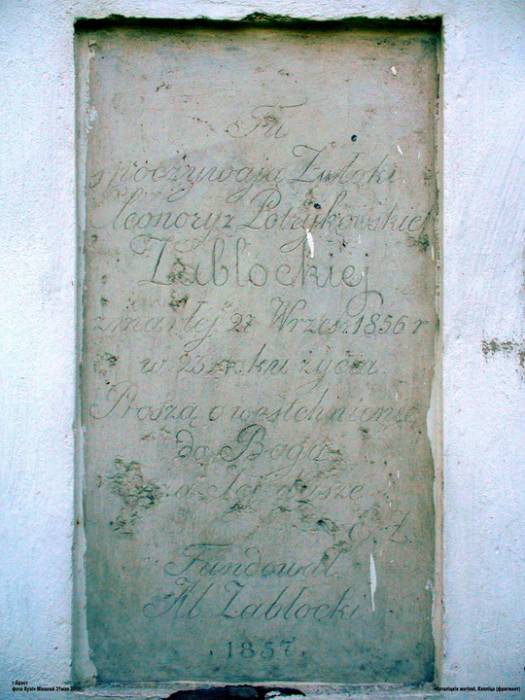 Tu
spoczywają Zwłoki
Eleonory z Potrykowskich
Zabłockiej
zmarłej 27 Wrześ. 1856 r
w 23 roku życia.
Proszą o westchnienie
do Boga
za Jej duszę
Fundował
Ab Zabłocki
1857.